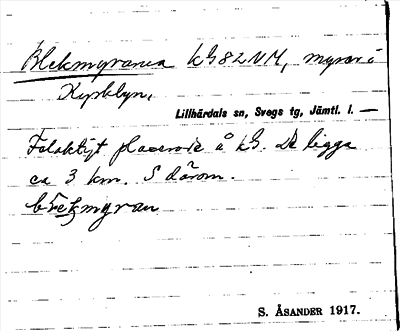 Blekmyrarna kG82NM, myrar i
Kyrkbyn,
Lillhärdals sn, Svegs tg, Jämtl. l. —
Felaktigt placerade å kG. De ligga
ca 3 km. S därom.
blekmyran
S. ÅSANDER 1917.